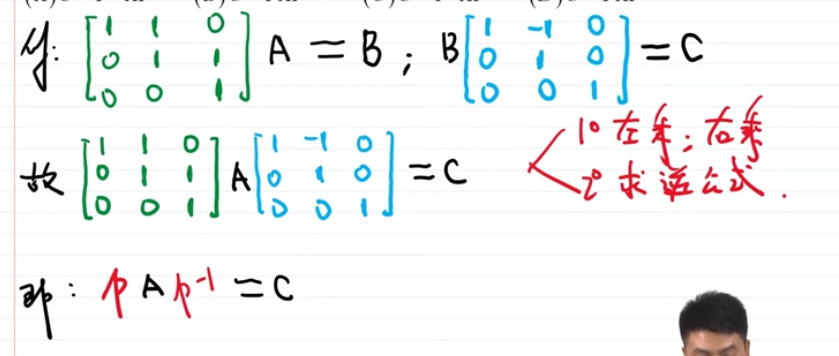 解: [1 1 0; 0 1 1; 0 0 1] A = B ; B [1 -1 0; 0 1 0; 0 0 1] = C
故 [1 1 0; 0 1 1; 0 0 1] A [1 -1 0; 0 1 0; 0 0 1] = C
1° 左乘; 右乘
2° 求逆公式.
即: P A P⁻¹ = C